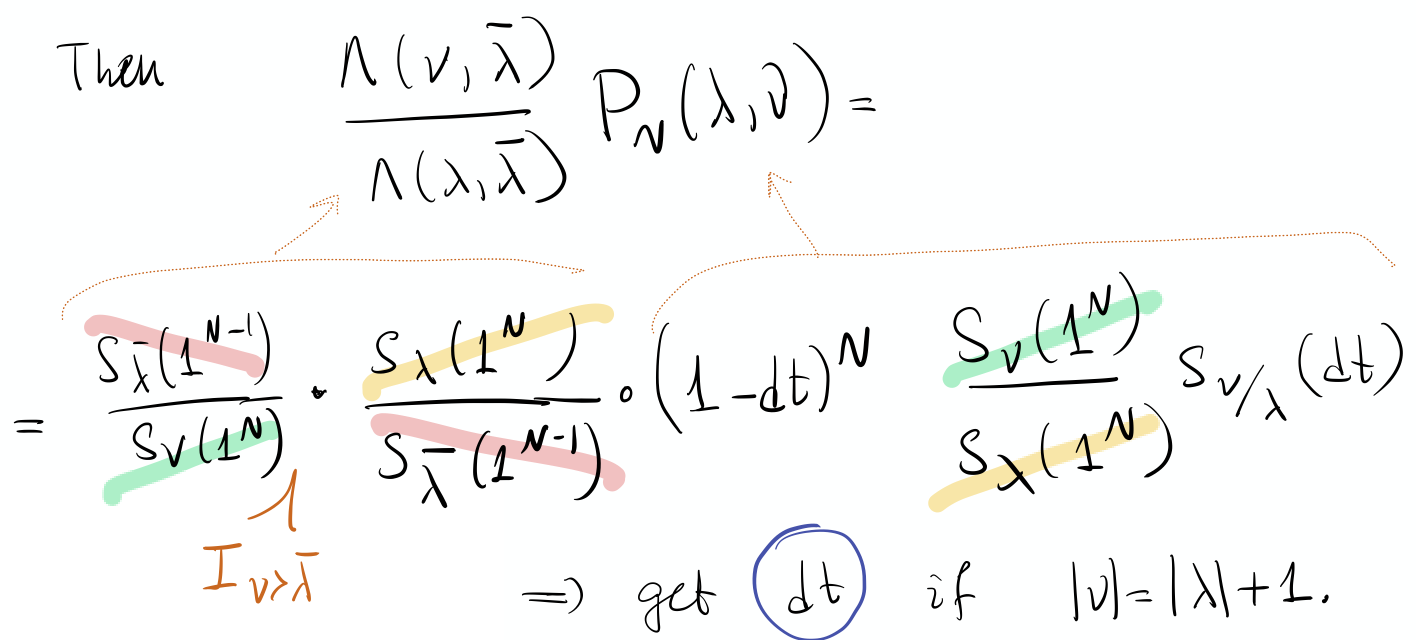 Then Λ(ν, λ̄) / Λ(λ, λ̄) P_N(λ, ν) =
= s_λ̄(1^{N-1}) / s_ν(1^N) · s_λ(1^N) / s_λ̄(1^{N-1}) · (1 - dt)^N s_ν(1^N) / s_λ(1^N) s_{ν/λ}(dt)
1_{ν≻λ̄}
⇒ get dt if |ν| = |λ| + 1.